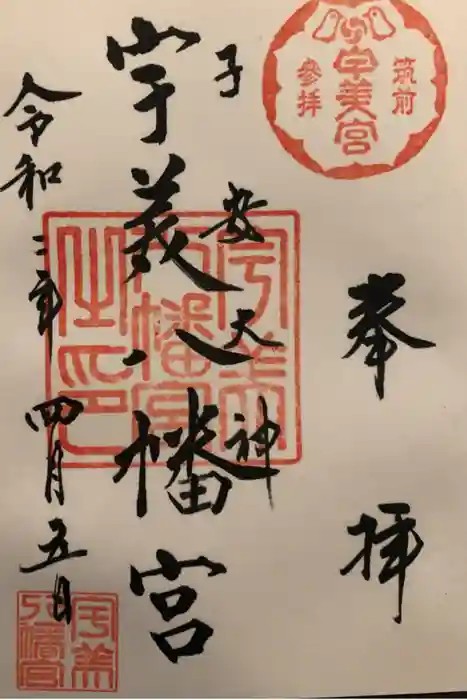 筑前
宇美宮
參拝
奉拝
子安大神
宇美八幡宮
宇美八幡宮之印
令和三年四月五日
宇美八幡宮